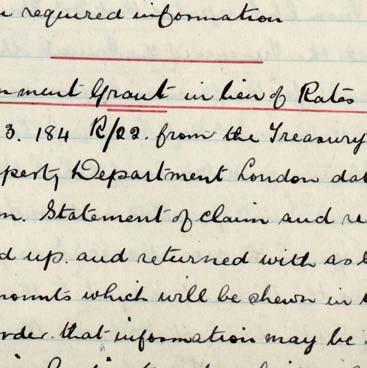 required information
nment Grant in lieu of Rates
3. 184 R/22. from the Treasury
perty Department London dat
m. Statement of claim and re
d up. and returned with as
mounts which will be shewn in
rder. that information may be